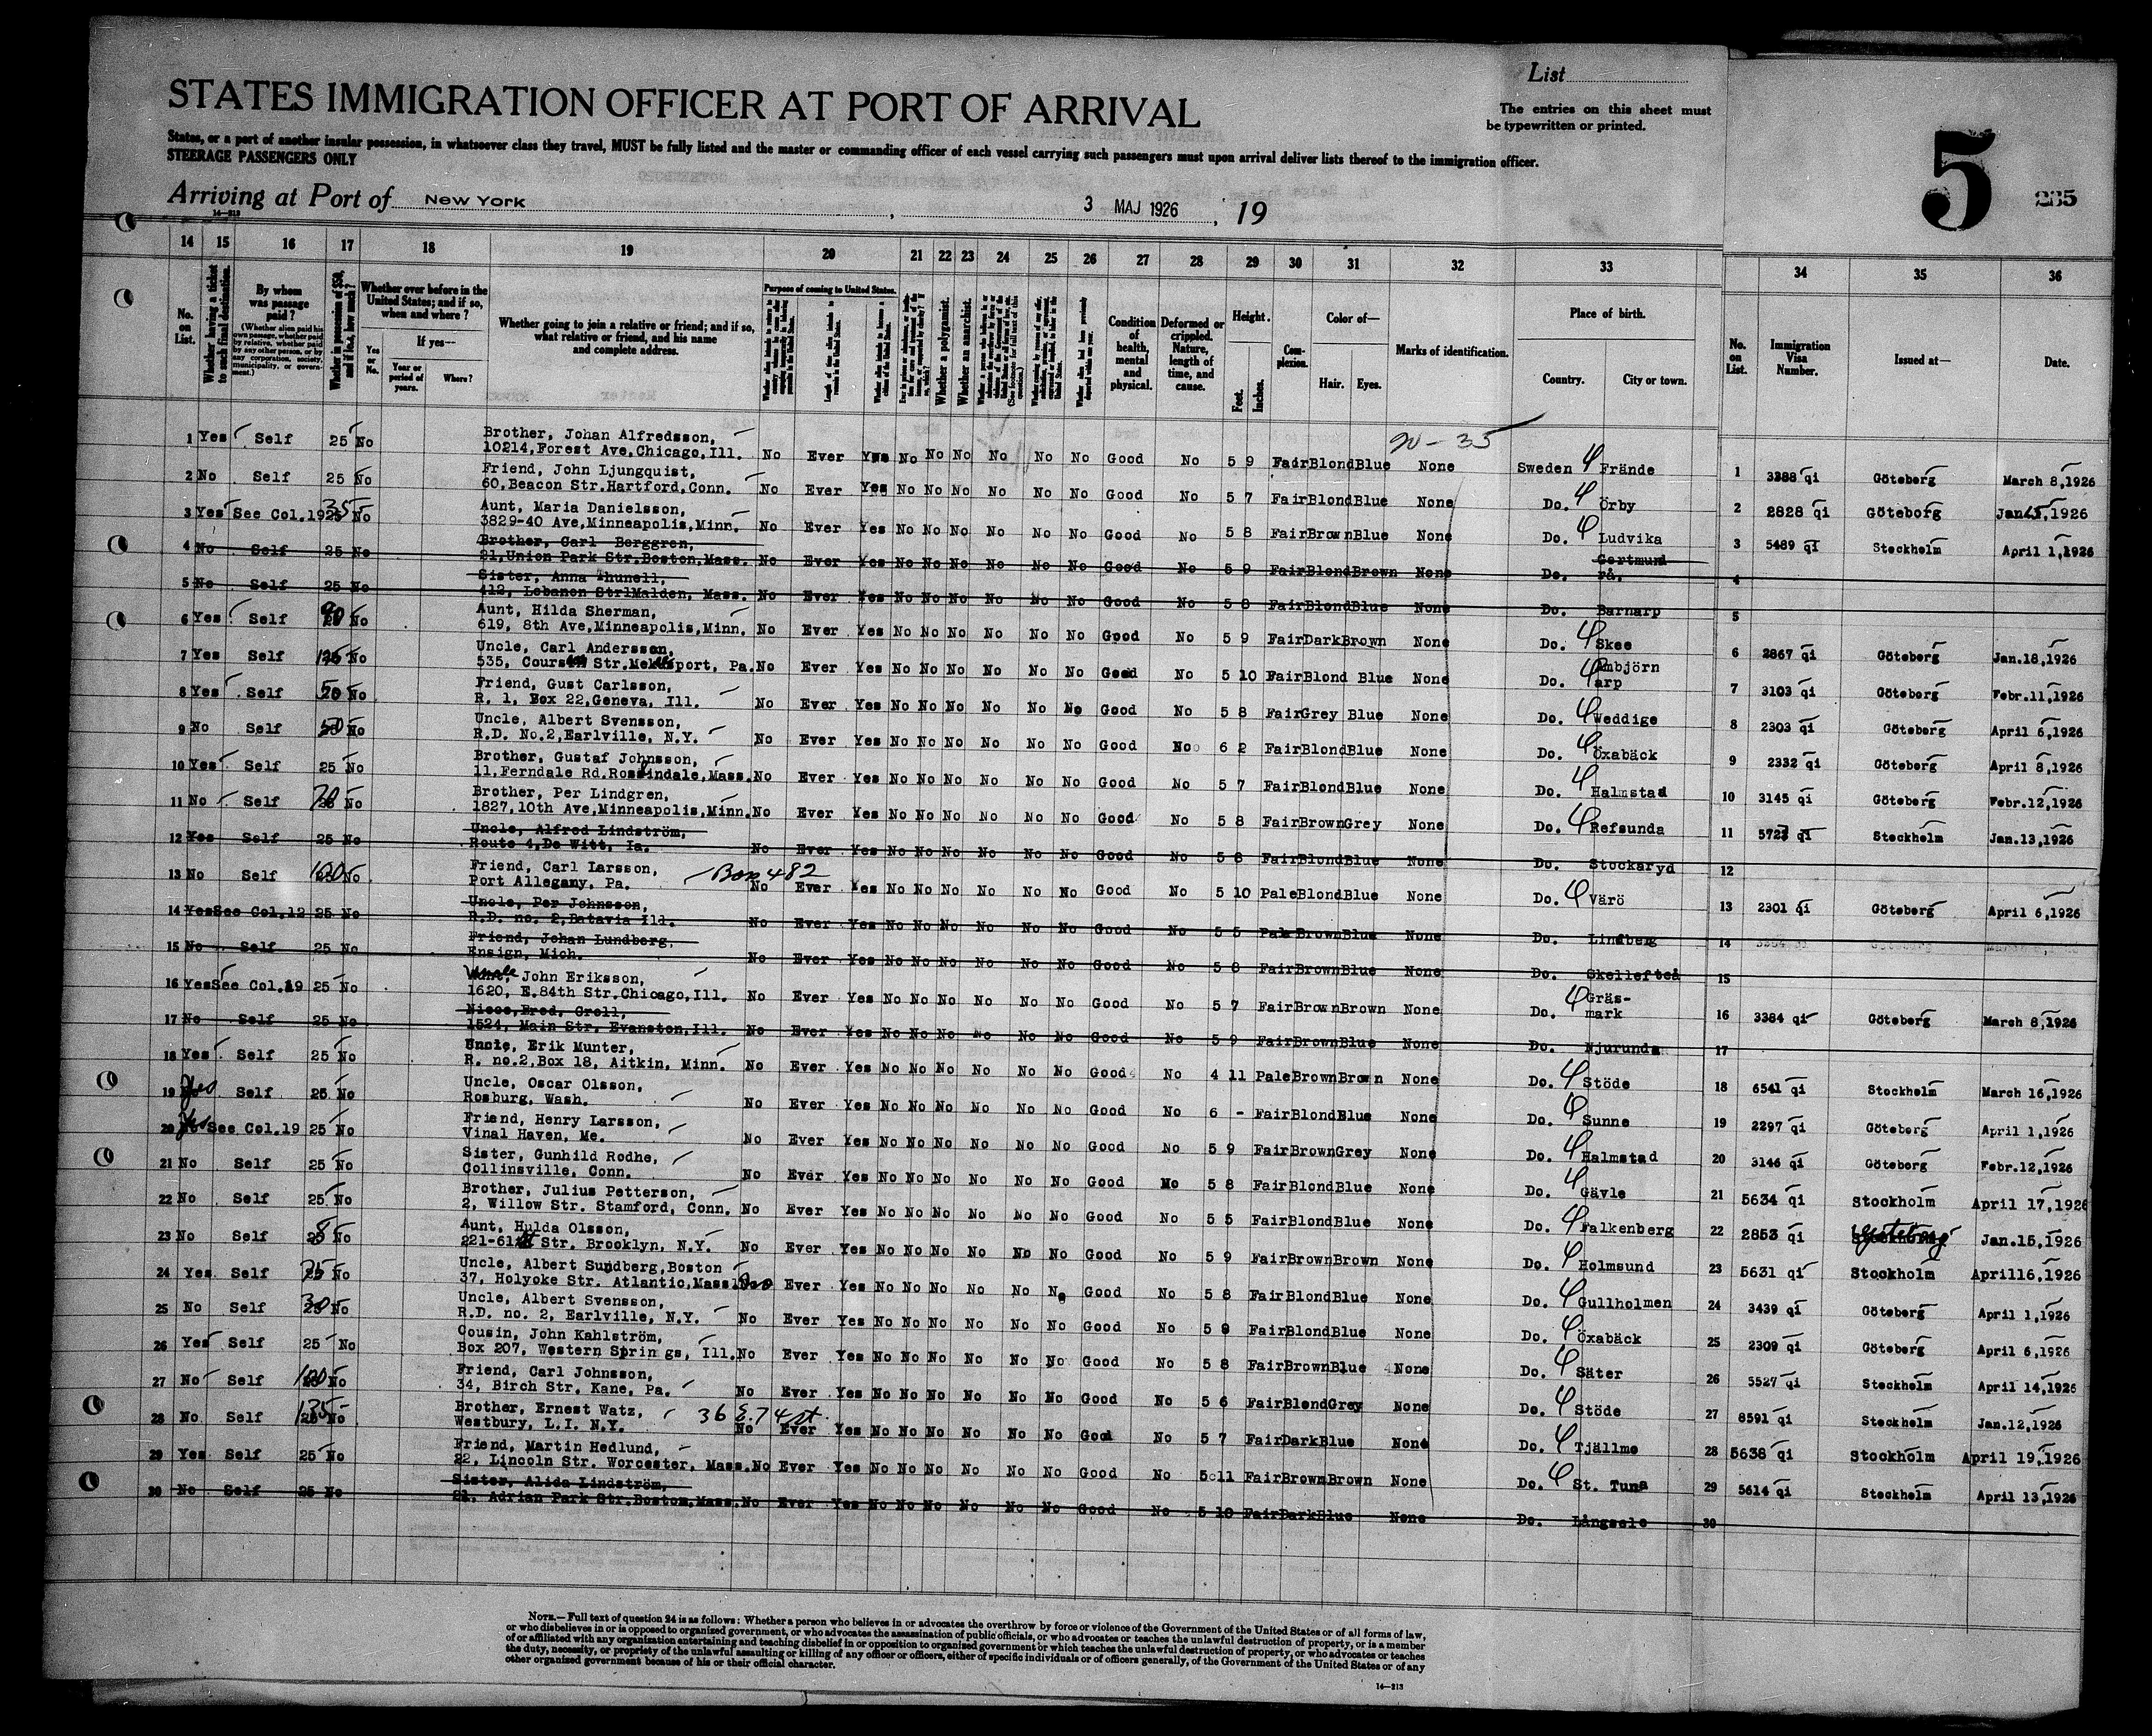 List
STATES IMMIGRATION OFFICER AT PORT OF ARRIVAL
The entries on this sheet must
be typewritten or printed.
States, or a port of another insular possession, in whatsoever class they travel, MUST be fully listed and the master or commanding officer of each vessel carrying such passengers must upon arrival deliver lists thereof to the immigration officer.
STEERAGE PASSENGERS ONLY
5 285
Arriving at Port of New York, 3 MAJ 1926, 19
14—213
14 15 16 17 18 19 20 21 22 23 24 25 26 27 28 29 30 31 32 33 34 35 36
No. on List.
Whether having a ticket to such final destination.
By whom was passage paid?
(Whether alien paid his own passage, whether paid by relative, whether paid by any other person, or by any corporation, society, municipality, or government.)
Whether in possession of $50, and if less, how much?
Whether ever before in the United States; and if so, when and where?
Yes or No.
If yes—
Year or period of years.
Where?
Whether going to join a relative or friend; and if so, what relative or friend, and his name and complete address.
Purpose of coming to United States.
Length of time alien intends to remain in the United States.
Whether alien intends to become a citizen of the United States.
Whether a polygamist.
Whether an anarchist.
Condition of health, mental and physical.
Deformed or crippled. Nature, length of time, and cause.
Height.
Feet.
Inches.
Complexion.
Color of—
Hair.
Eyes.
Marks of identification.
Place of birth.
Country.
City or town.
No. on List.
Immigration Visa Number.
Issued at—
Date.
1 Yes Self 25 No Brother, Johan Alfredsson,
10214, Forest Ave, Chicago, Ill. No Ever Yes No No No No No No Good No 5 9 Fair Blond Blue None Sweden Frände 1 3388 qi Göteberg March 8, 1926
2 No Self 25 No Friend, John Ljungquist,
60, Beacon Str. Hartford, Conn. No Ever Yes No No No No No No Good No 5 7 Fair Blond Blue None Do. Örby 2 2828 qi Göteborg Jan. 1926
3 Yes See Col. 19 35 No Aunt, Maria Danielsson,
3829-40 Ave, Minneapolis, Minn. No Ever Yes No No No No No No Good No 5 8 Fair Brown Blue None Do. Ludvika 3 5489 qi Steckhelm April 1, 1926
4 No Self 25 No Brother, Carl Berggren,
21, Union Park Str. Boston, Mass. No Ever Yes No No No No No No Good No 5 9 Fair Blond Brown None Do. Gertmund rå. 4
5 No Self 25 No Sister, Anna Thunell,
412, Lebanon Str1Malden, Mass. No Ever Yes No No No No No No Good No 5 8 Fair Blond Blue None Do. Barnarp 5
6 Yes Self No Aunt, Hilda Sherman,
619, 8th Ave, Minneapolis, Minn. No Ever Yes No No No No No No Good No 5 9 Fair Dark Brown None Do. Skee 6 2867 qi Göteberg Jan. 18, 1926
7 Yes Self No Uncle, Carl Andersson,
535, Str. port, Pa. No Ever Yes No No No No No No Good No 5 10 Fair Blond Blue None Do. arp 7 3103 qi Göteberg Febr. 11, 1926
8 Yes Self No Friend, Gust Carlsson,
R. 1, Box 22, Geneva, Ill. No Ever Yes No No No No No No Good No 5 8 Fair Grey Blue None Do. Weddige 8 2303 qi Göteberg April 6, 1926
9 No Self 50 No Uncle, Albert Svensson,
R.D. No.2, Earlville, N.Y. No Ever Yes No No No No No No Good No 6 2 Fair Blond Blue None Do. Öxabäck 9 2332 qi Göteberg April 8, 1926
10 Yes Self 25 No Brother, Gustaf Johnsson,
11, Ferndale Rd. Roslindale, Mass. No Ever Yes No No No No No No Good No 5 7 Fair Blond Blue None Do. Halmstad 10 3145 qi Göteberg Febr. 12, 1926
11 No Self No Brother, Per Lindgren,
1827, 10th Ave, Minneapolis, Minn. No Ever Yes No No No No No No Good No 5 8 Fair Brown Grey None Do. Refsunda 11 5723 qi Steckhelm Jan. 13, 1926
12 Yes Self 25 No Uncle, Alfred Lindström,
Route 4, De Witt, Ia. No Ever Yes No No No No No No Good No 5 8 Fair Blond Blue None Do. Stockaryd 12
13 No Self 100 No Friend, Carl Larsson, Box 482
Port Allegany, Pa. No Ever Yes No No No No No No Good No 5 10 Pale Blond Blue None Do. Värö 13 2301 qi Göteberg April 6, 1926
14 Yes See Col. 12 25 No Uncle, Per Johnsson,
R.D. no. 2, Batavia Ill. No Ever Yes No No No No No No Good No 5 5 Pale Brown Blue None Do. Lindberg 14
15 No Self 25 No Friend, Johan Lundberg,
Ensign, Mich. No Ever Yes No No No No No No Good No 5 8 Fair Brown Blue None Do. Skellefteå 15
16 Yes See Col. 19 25 No Uncle John Eriksson,
1620, E.84th Str. Chicago, Ill. No Ever Yes No No No No No No Good No 5 7 Fair Brown Brown None Do. Gräs-mark 16 3384 qi Göteberg March 8, 1926
17 No Self 25 No Niece, Fred, Groll,
1524, Main Str, Evanston, Ill. No Ever Yes No No No No No No Good No 5 9 Fair Brown Blue None Do. Njurunda 17
18 Yes Self 25 No Uncle, Erik Munter,
R. no.2, Box 18, Aitkin, Minn. No Ever Yes No No No No No No Good No 4 11 Pale Brown Brown None Do. Stöde 18 6541 qi Steckhelm March 16, 1926
19 Yes Self 25 No Uncle, Oscar Olsson,
Rosburg, Wash. No Ever Yes No No No No No No Good No 6 - Fair Blond Blue None Do. Sunne 19 2297 qi Göteberg April 1, 1926
20 Yes See Col. 19 25 No Friend, Henry Larsson,
Vinal Haven, Me. No Ever Yes No No No No No No Good No 5 9 Fair Brown Grey None Do. Halmstad 20 3146 qi Göteberg Febr. 12, 1926
21 No Self 25 No Sister, Gunhild Rodhe,
Collinsville, Conn. No Ever Yes No No No No No No Good No 5 8 Fair Blond Blue None Do. Gävle 21 5634 qi Stockholm April 17, 1926
22 No Self 25 No Brother, Julius Petterson,
2, Willow Str. Stamford, Conn. No Ever Yes No No No No No No Good No 5 5 Fair Blond Blue None Do. Falkenberg 22 2853 qi Göteborg Jan. 15, 1926
23 No Self No Aunt, Hulda Olsson,
221-61st Str. Brooklyn, N.Y. No Ever Yes No No No No No No Good No 5 9 Fair Brown Brown None Do. Holmsund 23 5631 qi Stockholm April 16, 1926
24 Yes Self No Uncle, Albert Sundberg, Boston
37, Holyoke Str. Atlantic, Mass No Ever Yes No No No No No No Good No 5 8 Fair Blond Blue None Do. Gullholmen 24 3439 qi Göteberg April 1, 1926
25 No Self 30 No Uncle, Albert Svensson,
R.D. no. 2, Earlville, N.Y. No Ever Yes No No No No No No Good No 5 9 Fair Blond Blue None Do. Öxabäck 25 2309 qi Göteberg April 6, 1926
26 Yes Self 25 No Cousin, John Kahlström,
Box 207, Western Springs, Ill. No Ever Yes No No No No No No Good No 5 8 Fair Brown Blue None Do. Säter 26 5527 qi Steckhelm April 14, 1926
27 No Self 100 No Friend, Carl Johnsson,
34, Birch Str. Kane, Pa. No Ever Yes No No No No No No Good No 5 6 Fair Blond Grey None Do. Stöde 27 8591 qi Steckhelm Jan. 12, 1926
28 No Self 135 No Brother, Ernest Watz, 36 E. 74 st.
Westbury, L.I. N.Y. No Ever Yes No No No No No No Good No 5 7 Fair Dark Blue None Do. Tjällmo 28 5638 qi Stockholm April 19, 1926
29 Yes Self 25 No Friend, Martin Hedlund,
22, Lincoln Str. Worcester, Mass. No Ever Yes No No No No No No Good No 5 11 Fair Brown Brown None Do. St. Tuna 29 5614 qi Steckhelm April 13, 1926
30 No Self 25 No Sister, Alida Lindström,
21, Adrian Park Str. Boston, Mass. No Ever Yes No No No No No No Good No 5 10 Fair Dark Blue None Do. Långsele 30
NOTE.—Full text of question 24 is as follows: Whether a person who believes in or advocates the overthrow by force or violence of the Government of the United States or of all forms of law,
or who disbelieves in or is opposed to organized government, or who advocates the assassination of public officials, or who advocates or teaches the unlawful destruction of property, or is a member
of or affiliated with any organization entertaining and teaching disbelief in or opposition to organized government or which teaches the unlawful destruction of property, or who advocates or teaches
the duty, necessity, or propriety of the unlawful assaulting or killing of any officer or officers, either of specific individuals or of officers generally, of the Government of the United States or of any
other organized government because of his or their official character.
14—213